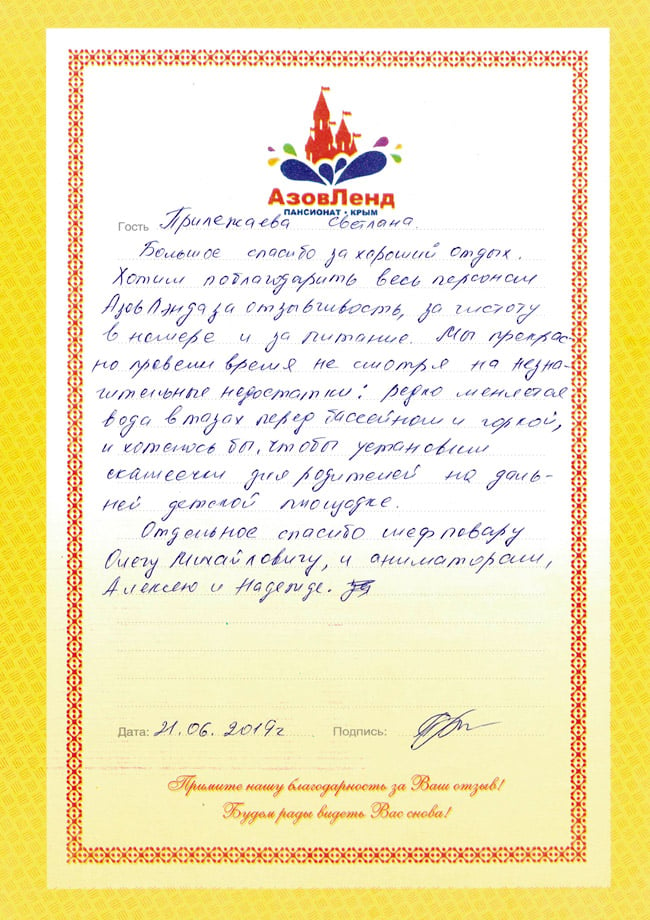 АзовЛенд
ПАНСИОНАТ • КРЫМ
Гость Прилежаева Светлана.
Большое спасибо за хороший отдых.
Хотим поблагодарить весь персонал
АзовЛэнда за отзывчивость, за чистоту
в номере и за питание. Мы прекрас-
но провели время не смотря на незна-
чительные недостатки: редко меняется
вода в тазах перед бассейном и горкой,
и хотелось бы, чтобы установили
скамеечки для родителей на даль-
ней детской площадке.
Отдельное спасибо шефповару
Олегу Михайловичу, и аниматорам,
Алексею и Надежде.
Дата: 21.06.2019г Подпись:
Примите нашу благодарность за Ваш отзыв!
Будем рады видеть Вас снова!